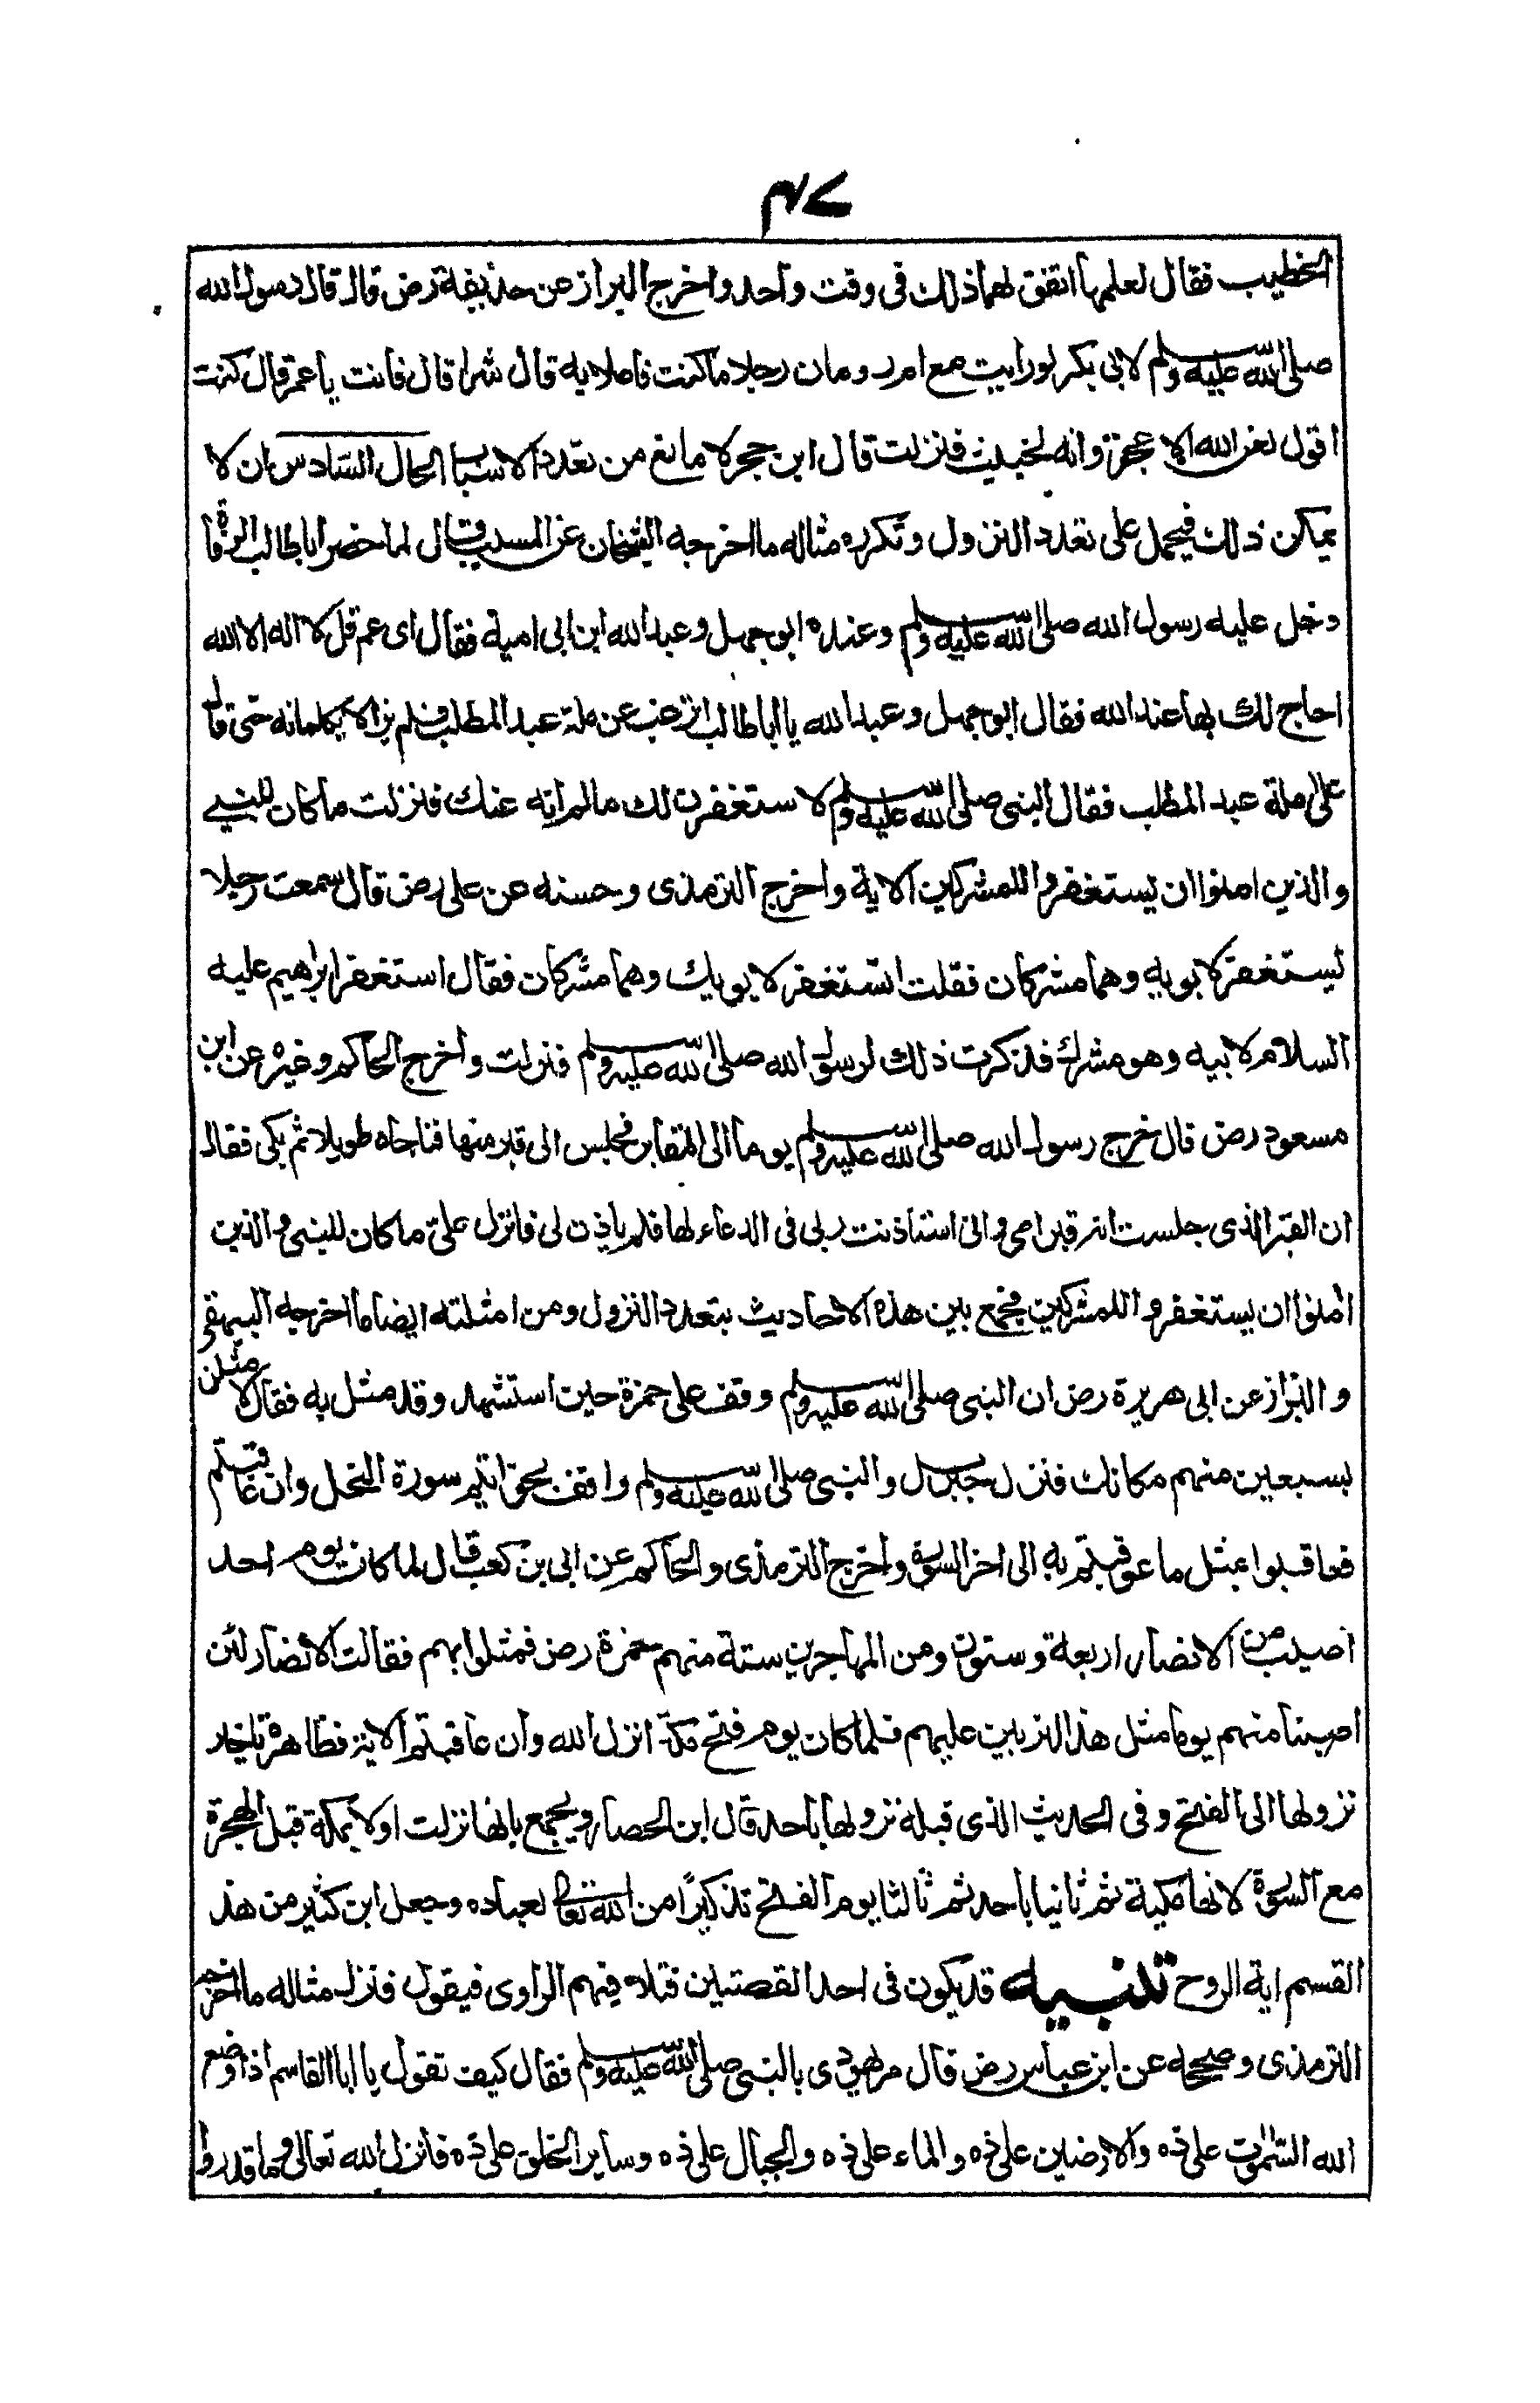 ۴۷
الخطيب فقال لعلهما اتفق لهما ذلك فى وقت واحد واخرج البزاز عن حذيفة رض قال قال رسول الله
صلى الله عليه وسلم لابى بكر لو رايت مع ام رومان رجلا ما كنت فاعلا به قال شرا قال فانت يا عمر قال كنت
اقول لعن الله الا عجز وانه لخبيث فنزلت قال ابن حجر لا مانع من تعدد الاسباب الحال السادس ان لا
يمكن ذلك فيحمل على تعدد النزول وتكرره مثاله ما اخرجه الشيخان عن المسيب قال لما حضر ابا طالب الوفاة
دخل عليه رسول الله صلى الله عليه وسلم وعنده ابو جهل وعبد الله ابن ابى امية فقال اى عم قل لا اله الا الله
احاج لك بها عند الله فقال ابو جهل وعبد الله يا ابا طالب اترغب عن ملة عبد المطلب فلم يزالا يكلمانه حتى قال
على ملة عبد المطلب فقال النبى صلى الله عليه وسلم لاستغفرن لك ما لم انه عنك فنزلت ما كان للنبى
والذين امنوا ان يستغفروا للمشركين الاية واخرج الترمذى وحسنه عن على رض قال سمعت رجلا
يستغفر لابويه وهما مشركان فقلت اتستغفر لابويك وهما مشركان فقال استغفر ابراهيم عليه
السلام لابيه وهو مشرك فذكرت ذلك لرسول الله صلى الله عليه وسلم فنزلت واخرج الحاكم وغيره عن ابن
مسعود رض قال خرج رسول الله صلى الله عليه وسلم يوما الى المقابر فجلس الى قبر منها فناجاه طويلا ثم بكى فقال
ان القبر الذى جلست عنده قبر امى وانى استاذنت ربى فى الدعاء لها فلم ياذن لى فانزل على ما كان للنبى والذين
امنوا ان يستغفروا للمشركين فجمع بين هذه الاحاديث بتعدد النزول ومن امثلته ايضا ما اخرجه البيهقى
والبزاز عن ابى هريرة رض ان النبى صلى الله عليه وسلم وقف على حمزة حين استشهد وقد مثل به فقال لامثلن
بسبعين منهم مكانك فنزل جبريل والنبى صلى الله عليه وسلم واقف بخواتيم سورة النحل وان عاقبتم
فعاقبوا بمثل ما عوقبتم به الى اخر السورة واخرج الترمذى والحاكم عن ابى بن كعب قال لما كان يوم احد
اصيب من الانصار اربعة وستون ومن المهاجرين ستة منهم حمزة رض فمثلوا بهم فقالت الانصار لئن
اصبنا منهم يوما مثل هذا لنربين عليهم فلما كان يوم فتح مكة انزل الله وان عاقبتم الاية فظاهره تاخير
نزولها الى الفتح وفى الحديث الذى قبله نزولها باحد قال ابن الحصار ويجمع بانها نزلت اولا بمكة قبل الهجرة
مع السورة لانها مكية ثم ثانيا باحد ثم ثالثا يوم الفتح تذكيرا من الله تعالى لعباده وجعل ابن كثير من هذ
القسم اية الروح تنبيه قد يكون فى احد القصتين فتلا فيهم الراوى فيقول فنزل مثاله ما اخرجه
الترمذى وصححه عن ابن عباس رض قال مر يهودى بالنبى صلى الله عليه وسلم فقال كيف تقول يا ابا القاسم اذا وضع
الله السموات على ذه والارضين على ذه والماء على ذه والجبال على ذه وساير الخلق على ذه فانزل الله تعالى وما قدروا